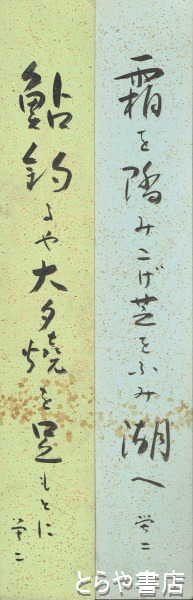 霜を踏みこげ芝をふみ湖へ
栄二
鮎釣るや大夕焼を足もとに
栄二
とらや書店